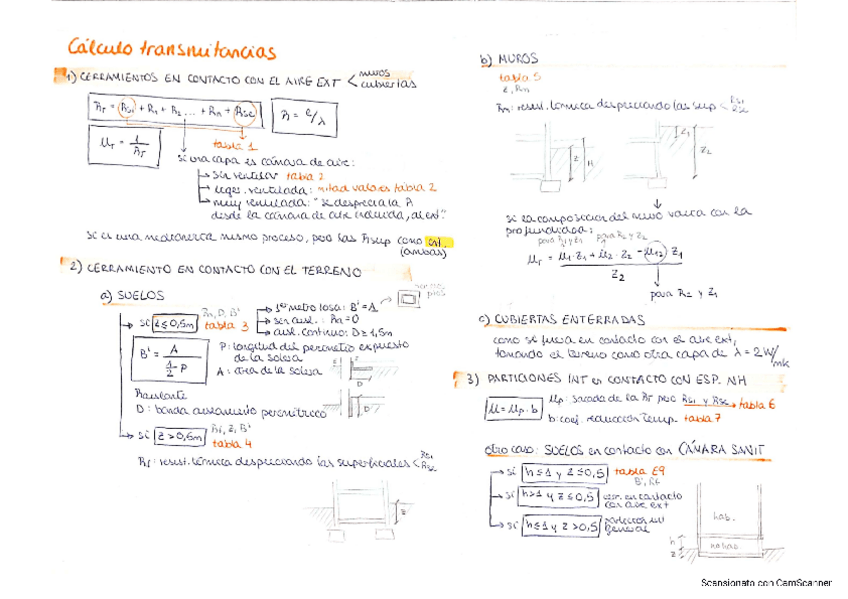 Cálculo transmitancias
1) CERRAMIENTOS EN CONTACTO CON EL AIRE EXT < muros
cubiertas
RT = Rsi + R1 + R2 ... + Rn + Rse
R = e/λ
UT = 1/RT
tabla 1
si una capa es cámara de aire:
sin ventilar tabla 2
liger. ventilada: mitad valores tabla 2
muy ventilada: "se desprecia la R
desde la cámara de aire incluida, al ext".
si es una medianería mismo proceso, pero las Rsup como int.
(ambas)
2) CERRAMIENTO EN CONTACTO CON EL TERRENO
a) SUELOS
si z ≤ 0,5m
Ra, D, B'
tabla 3
1er metro losa: B' = 1
sin aisl.: Ra = 0
aisl. continuo: D ≥ 1,5m
B' = A / ½ P
P: longitud del perímetro expuesto
de la solera
A: área de la solera
D: banda aislamiento perimétrico
si z > 0,5m
Rf, z, B'
tabla 4
Rf: resist. térmica despreciando las superficiales < Rsi
Rse
z
b) MUROS
tabla 5
z, Rm
Rm: resist. térmica despreciando las sup < Rsi
Rse
z H
z1
z2
si la composición del muro varía con la
profundidad:
para R1 y z1 para R2 y z2
UT = U1·z1 + U2·z2 - U12·z1
z2
para R2 y z1
c) CUBIERTAS ENTERRADAS
como si fuera en contacto con el aire ext,
tomando el terreno como otra capa de λ = 2 W/mK
3) PARTICIONES INT en CONTACTO CON ESP. NH
U = Up · b
Up: sacada de la RT pero Rsi y Rse tabla 6
b: coef. reducción temp. tabla 7
otro caso: SUELOS en contacto con CÁMARA SANIT
si h ≤ 1 y z ≤ 0,5 tabla E9
B', Rf
si h > 1 y z ≤ 0,5 cerr. en contacto
con aire ext
si h ≤ 1 y z > 0,5
general
hab.
no hab.
h
z
Scansionato con CamScanner